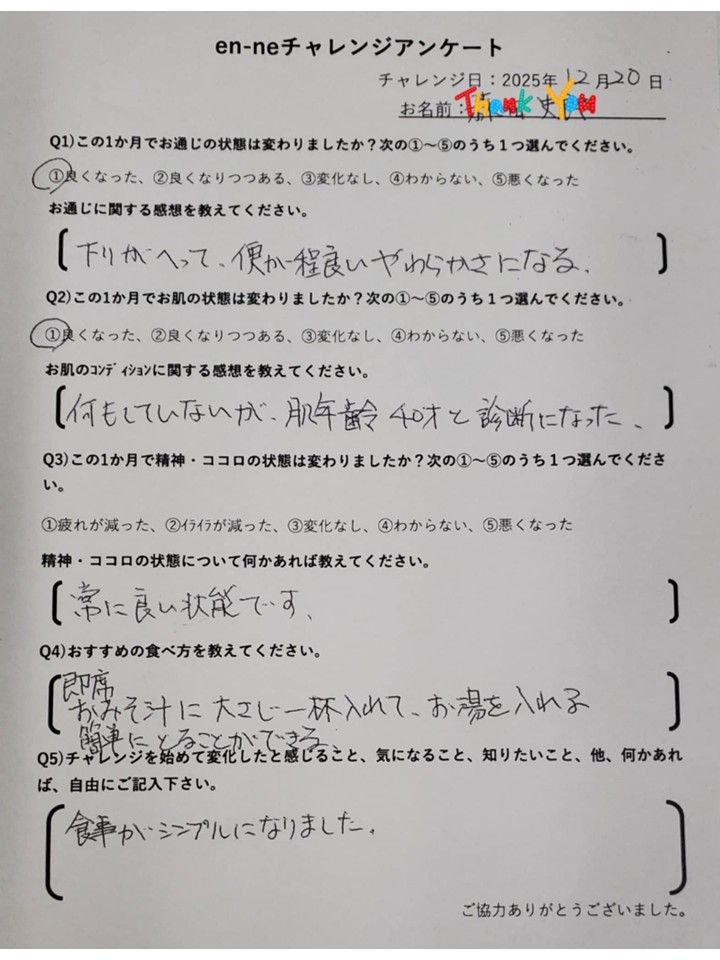 en-neチャレンジアンケート
チャレンジ日：2025年12月20日
お名前：Thank You
Q1)この1か月でお通じの状態は変わりましたか？次の①～⑤のうち１つ選んでください。
①良くなった、②良くなりつつある、③変化なし、④わからない、⑤悪くなった
お通じに関する感想を教えてください。
下りがへって、便が程良いやわらかさになる、
Q2)この1か月でお肌の状態は変わりましたか？次の①～⑤のうち１つ選んでください。
①良くなった、②良くなりつつある、③変化なし、④わからない、⑤悪くなった
お肌のｺﾝﾃﾞｨｼｮﾝに関する感想を教えてください。
何もしていないが、肌年齢40才と診断になった、
Q3)この1か月で精神・ココロの状態は変わりましたか？次の①～⑤のうち１つ選んでくださ
い。
①疲れが減った、②ｲﾗｲﾗが減った、③変化なし、④わからない、⑤悪くなった
精神・ココロの状態について何かあれば教えてください。
常に良い状態です、
Q4)おすすめの食べ方を教えてください。
即席
おみそ汁に大さじ一杯入れて、お湯を入れる
簡単にとることができる
Q5)チャレンジを始めて変化したと感じること、気になること、知りたいこと、他、何かあれ
ば、自由にご記入下さい。
食事がシンプルになりました。
ご協力ありがとうございました。